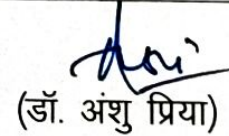 (डॉ. अंशु प्रिया)